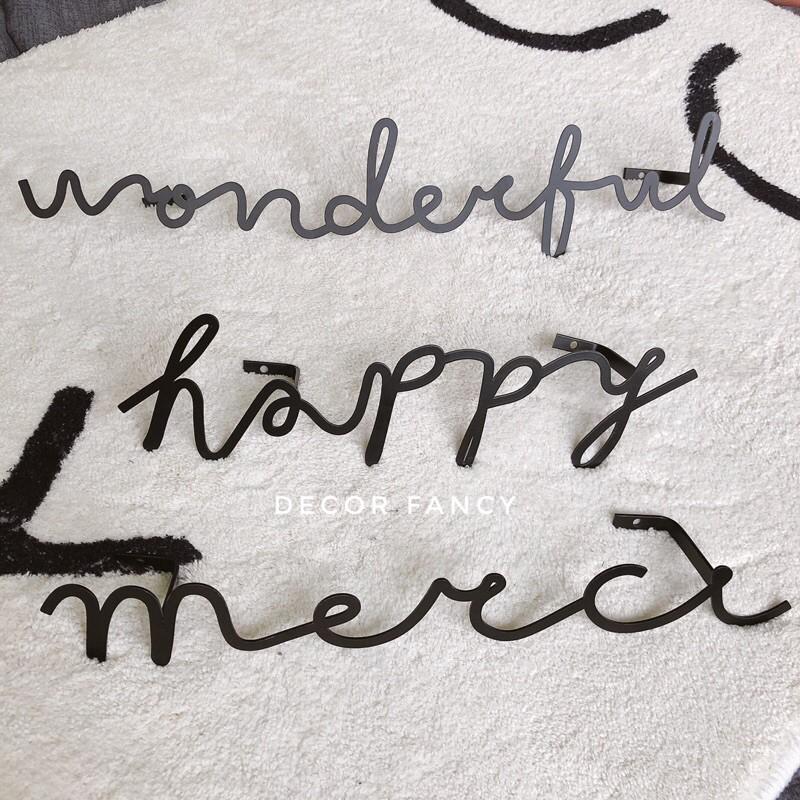 wonderful
happy
DECOR FANCY
merci